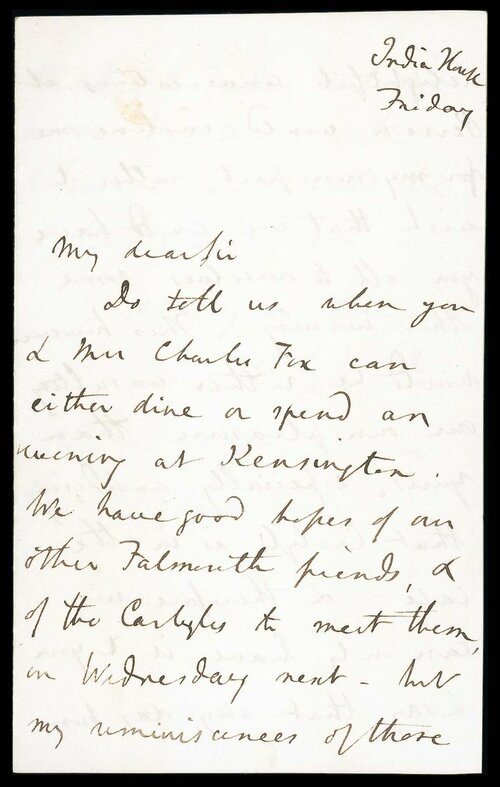 India House
Friday
My dear Sir
Do tell us when you
& Mrs Charles Fox can
either dine or spend an
evening at Kensington.
We have good hopes of our
other Falmouth friends, &
of the Carlyles to meet them,
on Wednesday next - but
my reminiscences of those